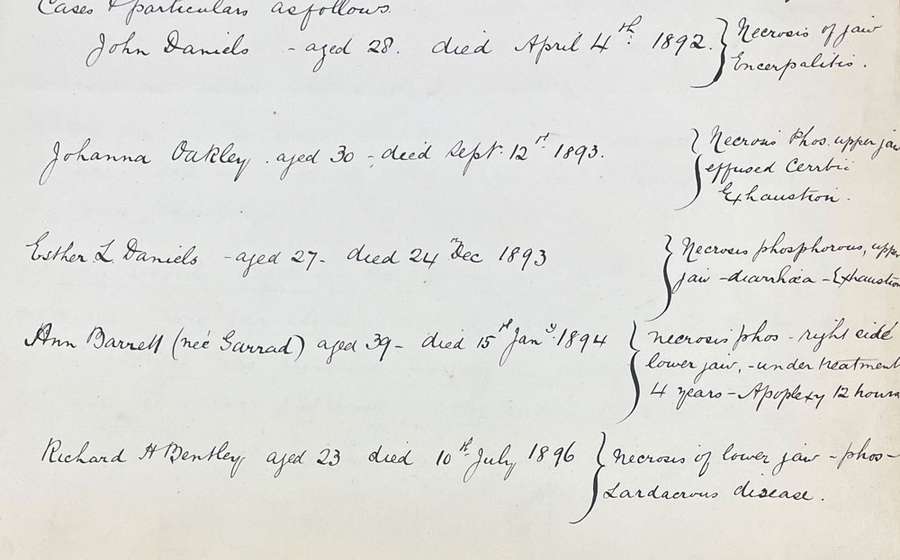 Cases & particulars as follows.
John Daniels - aged 28. died April 4th 1892. } Necrosis of jaw
Encerpalitis.
Johanna Oakley. aged 30 - died Sept. 12th 1893. } Necrosis Phos. upper jaw
effused Cerrbic
Exhaustion.
Esther L. Daniels - aged 27 - died 24th Dec 1893 } Necrosis phosphorous, upper
jaw - diarrhœa - Exhaustion
Ann Barrett (neé Garrad) aged 39 - died 15th Jany. 1894 } necrosis phos - right side
lower jaw, - under treatment
4 years - Apoplexy 12 hours
Richard H Bentley aged 23 died 10th July 1896 } Necrosis of lower jaw - phos -
Lardacrous disease.